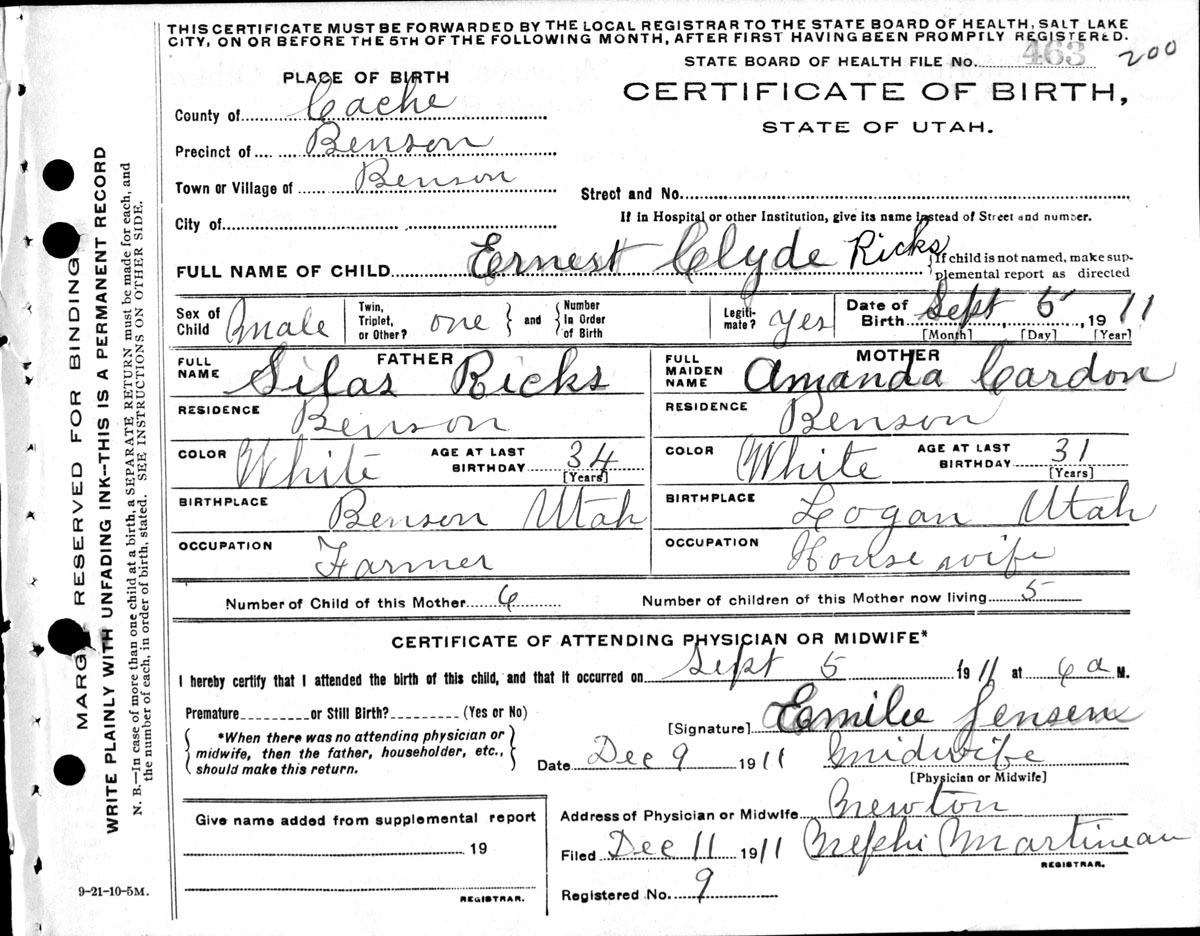 THIS CERTIFICATE MUST BE FORWARDED BY THE LOCAL REGISTRAR TO THE STATE BOARD OF HEALTH, SALT LAKE
CITY, ON OR BEFORE THE 5TH OF THE FOLLOWING MONTH, AFTER FIRST HAVING BEEN PROMPTLY REGISTERED.
STATE BOARD OF HEALTH FILE No. 463 200
PLACE OF BIRTH
CERTIFICATE OF BIRTH,
STATE OF UTAH.
County of Cache
Precinct of Benson
Town or Village of Benson
Street and No.
City of
If in Hospital or other Institution, give its name instead of Street and number.
FULL NAME OF CHILD Ernest Clyde Ricks
{If child is not named, make sup-
plemental report as directed
Sex of Child Male Twin, Triplet, or Other? one } and { Number In Order of Birth Legiti-mate? yes Date of Birth Sept 5, 1911
[Month] [Day] [Year]
FATHER
FULL NAME Silas Ricks
RESIDENCE Benson
COLOR White AGE AT LAST BIRTHDAY 34
[Years]
BIRTHPLACE Benson Utah
OCCUPATION Farmer
MOTHER
FULL MAIDEN NAME Amanda Cardon
RESIDENCE Benson
COLOR White AGE AT LAST BIRTHDAY 31
[Years]
BIRTHPLACE Logan Utah
OCCUPATION House wife
Number of Child of this Mother 6 Number of children of this Mother now living 5
CERTIFICATE OF ATTENDING PHYSICIAN OR MIDWIFE*
I hereby certify that I attended the birth of this child, and that it occurred on Sept 5 1911 at 6 a M.
Premature or Still Birth? (Yes or No)
{ *When there was no attending physician or
midwife, then the father, householder, etc.,
should make this return. }
[Signature] Emilie Jensen
Date Dec 9 1911 midwife
[Physician or Midwife]
Give name added from supplemental report
19
REGISTRAR.
Address of Physician or Midwife Newton
Filed Dec 11 1911 Nephi Martineau
REGISTRAR.
Registered No. 9
9-21-10-5M.
RESERVED FOR BINDING
WRITE PLAINLY WITH UNFADING INK—THIS IS A PERMANENT RECORD
N. B.—In case of more than one child at a birth, a SEPARATE RETURN must be made for each, and
the number of each, in order of birth, stated. SEE INSTRUCTIONS ON OTHER SIDE.